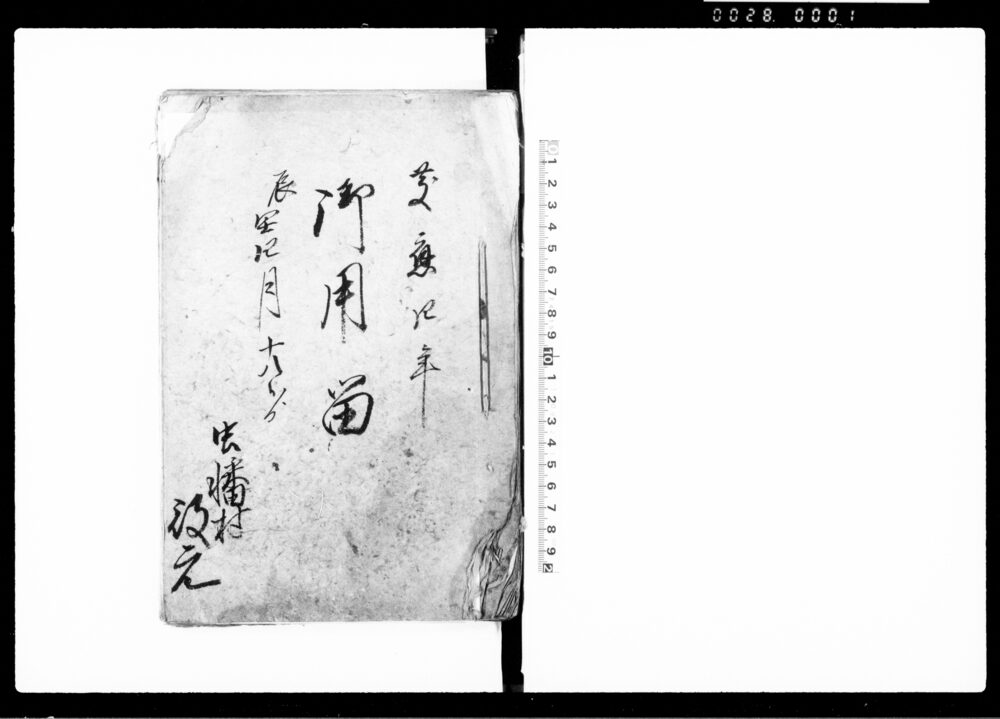 0028. 0001
慶應四年
御用留
辰閏四月十八日ゟ
虫幡村
役元
0 1 2 3 4 5 6 7 8 9 10 1 2 3 4 5 6 7 8 9 2